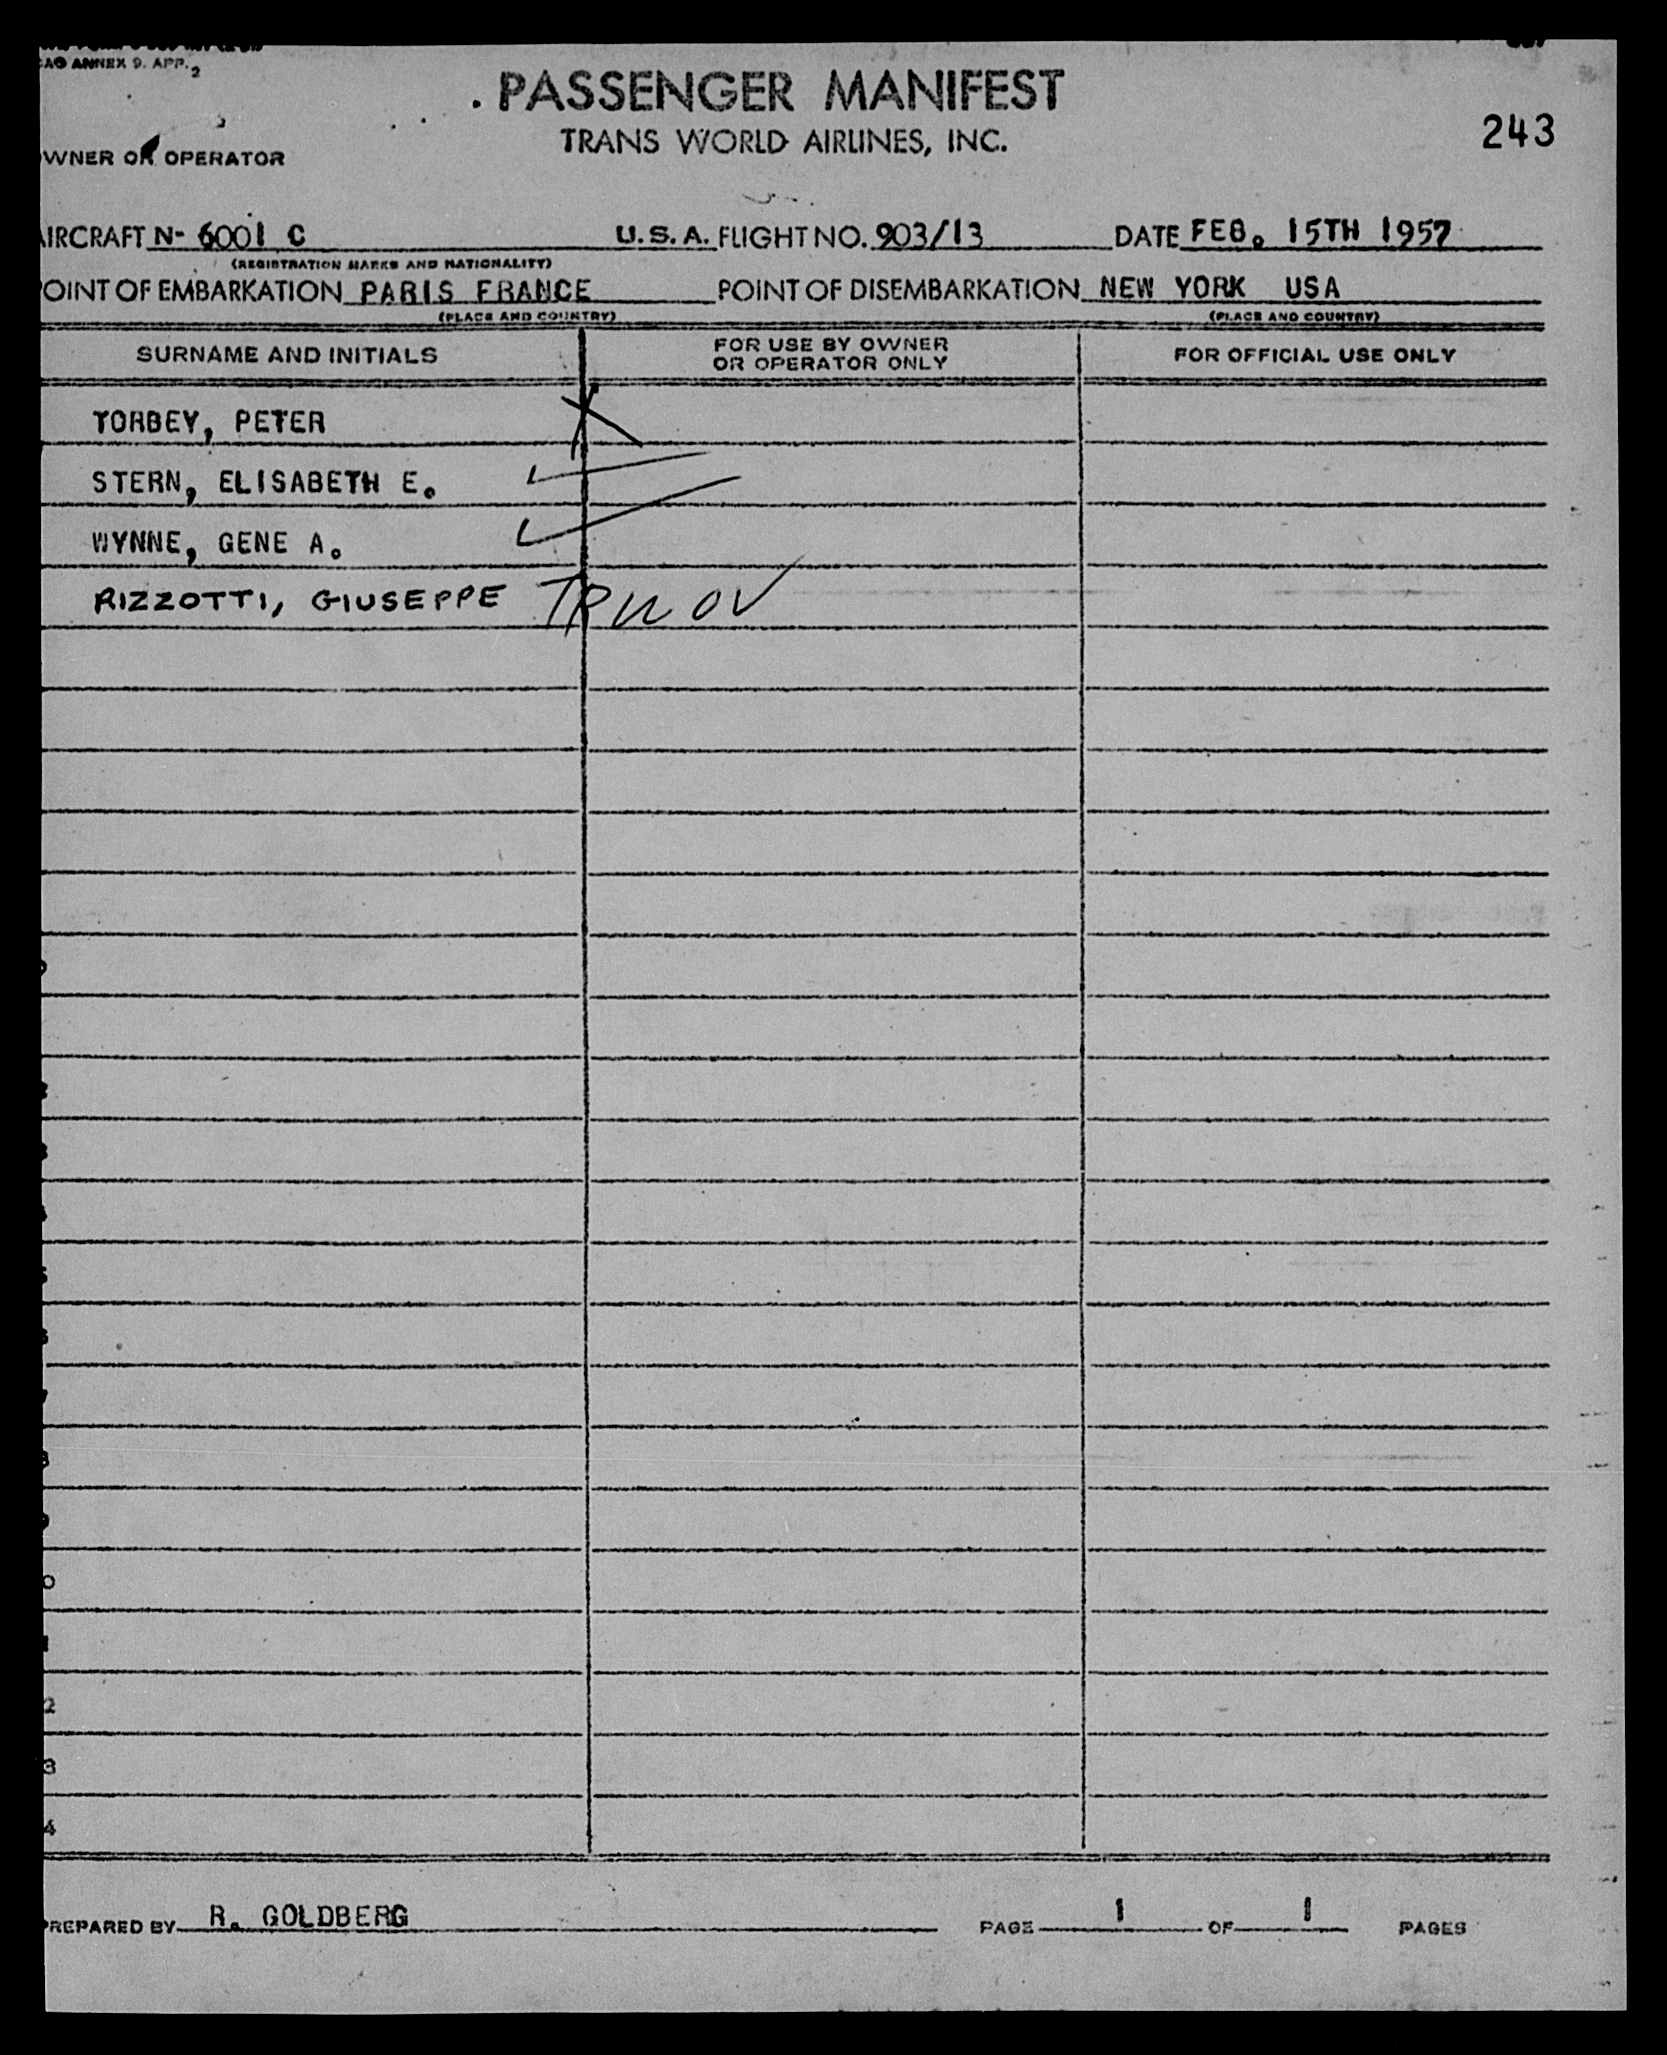 AO ANNEX 9. APP. 2
PASSENGER MANIFEST
TRANS WORLD AIRLINES, INC.
243
WNER OR OPERATOR
AIRCRAFT N- 6001 C U.S.A. FLIGHT NO. 903/13 DATE FEB. 15TH 1957
(REGISTRATION MARKS AND NATIONALITY)
OINT OF EMBARKATION PARIS FRANCE POINT OF DISEMBARKATION NEW YORK USA
(PLACE AND COUNTRY) (PLACE AND COUNTRY)
SURNAME AND INITIALS FOR USE BY OWNER OR OPERATOR ONLY FOR OFFICIAL USE ONLY
TORBEY, PETER X
STERN, ELISABETH E. ✓
WYNNE, GENE A. ✓
RIZZOTTI, GIUSEPPE
0
2
3
4
PREPARED BY R. GOLDBERG PAGE 1 OF 1 PAGES